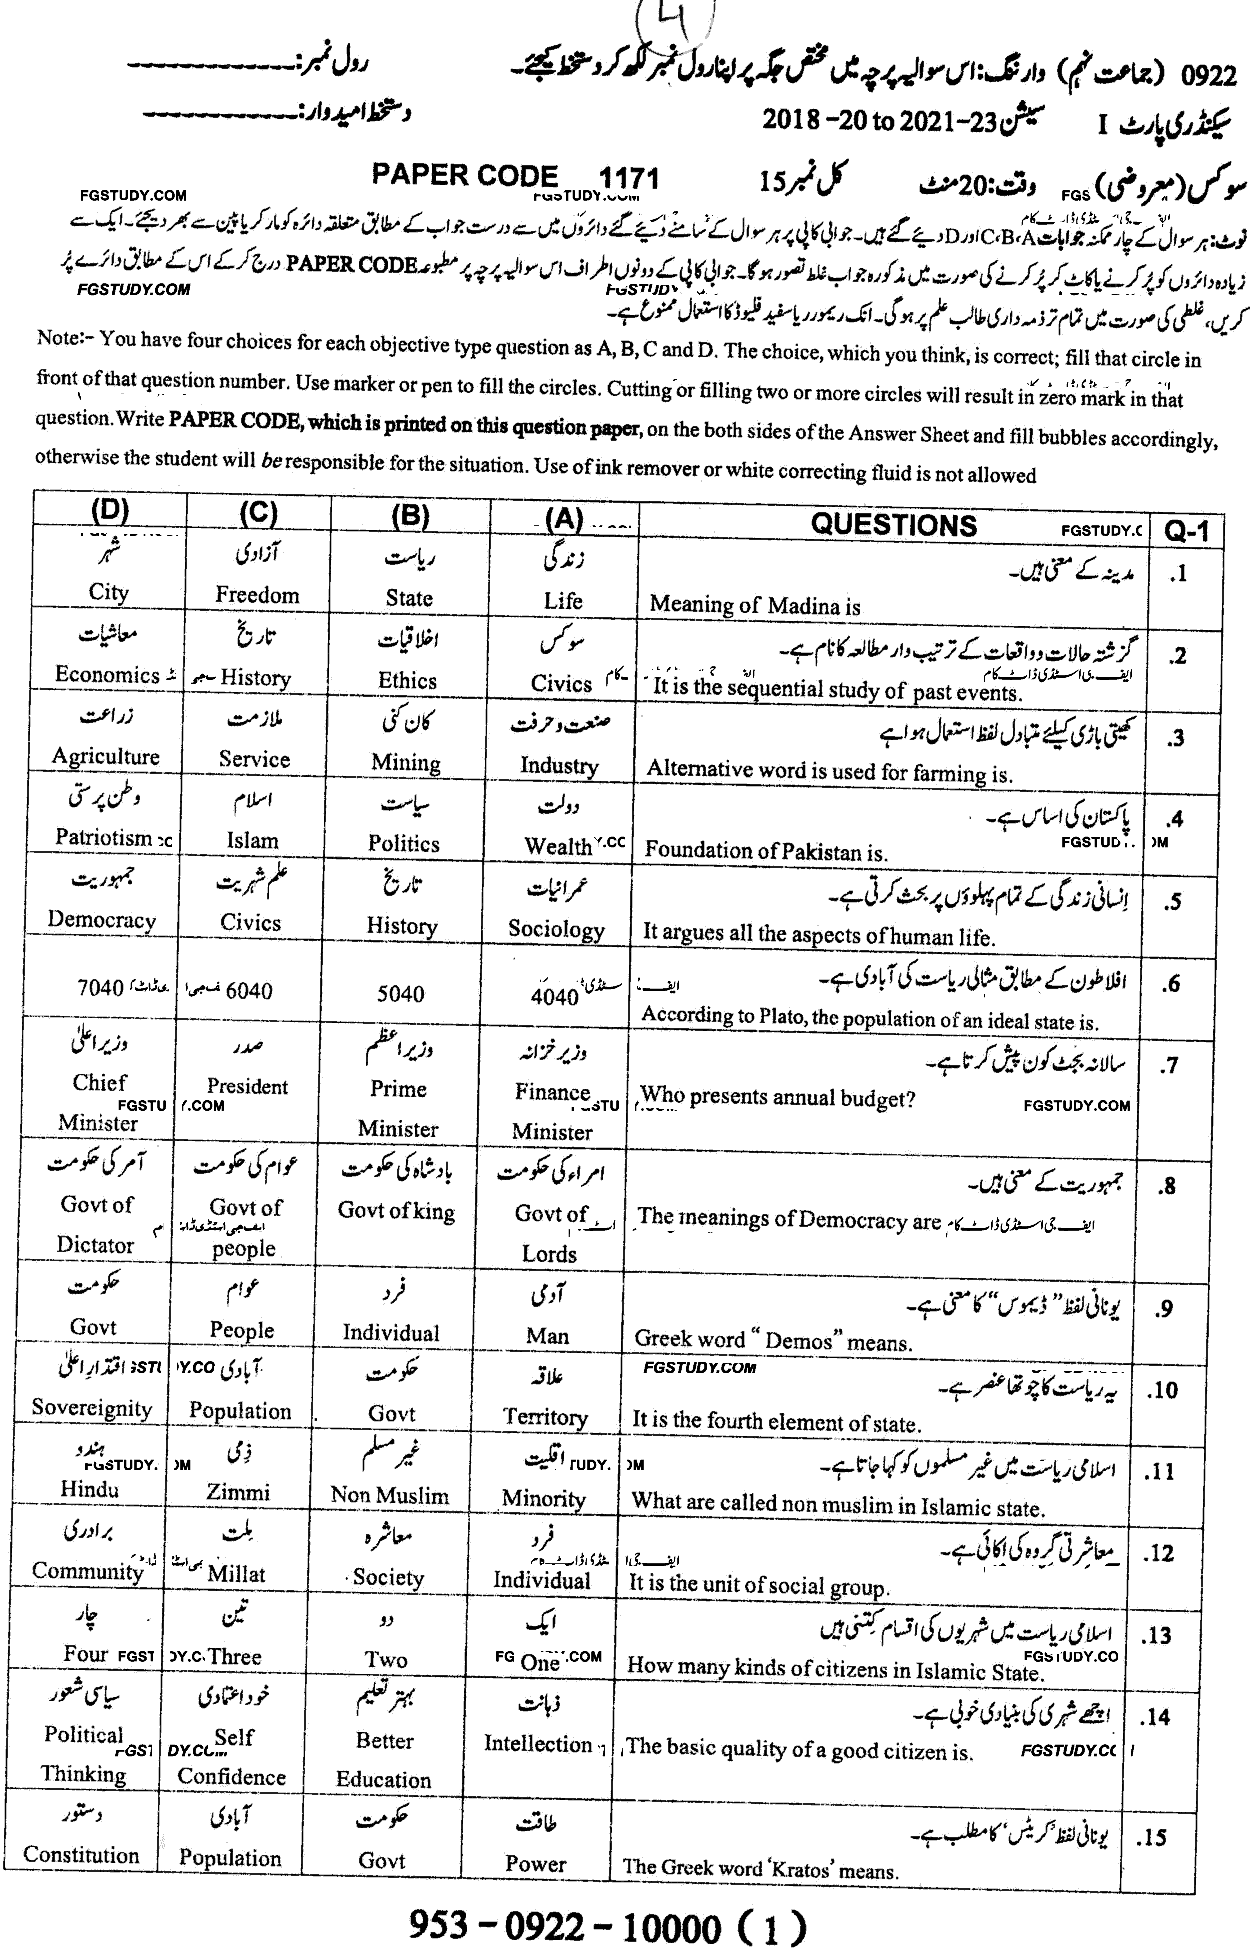 4
0922 (جماعت نہم) وارننگ: اس سوالیہ پرچہ میں مختص جگہ پر اپنا رول نمبر لکھ کر دستخط کیجئے۔ رول نمبر:
سیکنڈری پارٹ I سیشن 2018-20 to 2021-23 دستخط امیدوار:
سوکس (معروضی) FGS وقت: 20 منٹ کل نمبر 15 PAPER CODE 1171
FGSTUDY.COM FGSTUDY.COM
نوٹ: ہر سوال کے چار ممکنہ جوابات C،B،A اور D دیئے گئے ہیں۔ جوابی کاپی پر ہر سوال کے سامنے دیئے گئے دائروں میں سے درست جواب کے مطابق متعلقہ دائرہ کو مارکر یا پین سے بھر دیجئے۔ ایک سے
زیادہ دائروں کو پُر کرنے یا کاٹ کر پُر کرنے کی صورت میں مذکورہ جواب غلط تصور ہوگا۔ جوابی کاپی کے دونوں اطراف اس سوالیہ پرچہ پر مطبوعہ PAPER CODE درج کر کے اس کے مطابق دائرے پُر
FGSTUDY.COM FGSTUDY
کریں، غلطی کی صورت میں تمام تر ذمہ داری طالب علم پر ہوگی۔ انک ریموور یا سفید فلیوڈ کا استعمال ممنوع ہے۔
Note:- You have four choices for each objective type question as A, B, C and D. The choice, which you think, is correct; fill that circle in
front of that question number. Use marker or pen to fill the circles. Cutting or filling two or more circles will result in zero mark in that
question. Write PAPER CODE, which is printed on this question paper, on the both sides of the Answer Sheet and fill bubbles accordingly,
otherwise the student will be responsible for the situation. Use of ink remover or white correcting fluid is not allowed
(D) (C) (B) (A) QUESTIONS FGSTUDY.C Q-1
شہر آزادی ریاست زندگی مدینہ کے معنی ہیں۔ .1
City Freedom State Life Meaning of Madina is
معاشیات تاریخ اخلاقیات سوکس گزشتہ حالات و واقعات کے ترتیب وار مطالعہ کا نام ہے۔ .2
Economics History Ethics Civics It is the sequential study of past events.
زراعت ملازمت کان کنی صنعت و حرفت کھیتی باڑی کیلئے متبادل لفظ استعمال ہوا ہے .3
Agriculture Service Mining Industry Alternative word is used for farming is.
وطن پرستی اسلام سیاست دولت پاکستان کی اساس ہے۔ .4
Patriotism Islam Politics Wealth Foundation of Pakistan is. FGSTUDY. OM
جمہوریت علم شہریت تاریخ عمرانیات انسانی زندگی کے تمام پہلوؤں پر بحث کرتی ہے۔ .5
Democracy Civics History Sociology It argues all the aspects of human life.
افلاطون کے مطابق مثالی ریاست کی آبادی ہے۔ .6
7040 6040 5040 4040 According to Plato, the population of an ideal state is.
وزیر اعلیٰ صدر وزیر اعظم وزیر خزانہ سالانہ بجٹ کون پیش کرتا ہے۔ .7
Chief President Prime Finance Who presents annual budget? FGSTUDY.COM
FGSTU Y.COM
Minister Minister Minister
آمر کی حکومت عوام کی حکومت بادشاہ کی حکومت امراء کی حکومت جمہوریت کے معنی ہیں۔ .8
Govt of Govt of Govt of king Govt of The meanings of Democracy are ایف جی اسٹڈی ڈاٹ کام
Dictator people Lords
حکومت عوام فرد آدمی یونانی لفظ “ڈیموس” کا معنی ہے۔ .9
Govt People Individual Man Greek word “Demos” means.
FGSTUDY.COM
اقتدار اعلیٰ آبادی حکومت علاقہ یہ ریاست کا چوتھا عنصر ہے۔ .10
Sovereignity Population Govt Territory It is the fourth element of state.
ہندو ذمی غیر مسلم اقلیت اسلامی ریاست میں غیر مسلموں کو کہا جاتا ہے۔ .11
Hindu Zimmi Non Muslim Minority What are called non muslim in Islamic state.
برادری ملت معاشرہ فرد معاشرتی گروہ کی اکائی ہے۔ .12
Community Millat Society Individual It is the unit of social group.
چار تین دو ایک اسلامی ریاست میں شہریوں کی اقسام کتنی ہیں .13
Four Three Two One How many kinds of citizens in Islamic State. FGSTUDY.CO
سیاسی شعور خود اعتمادی بہتر تعلیم ذہانت اچھے شہری کی بنیادی خوبی ہے۔ .14
Political Self Better Intellection The basic quality of a good citizen is. FGSTUDY.CC
Thinking Confidence Education
دستور آبادی حکومت طاقت یونانی لفظ ’کریٹس‘ کا مطلب ہے۔ .15
Constitution Population Govt Power The Greek word ‘Kratos’ means.
953-0922-10000 (1)